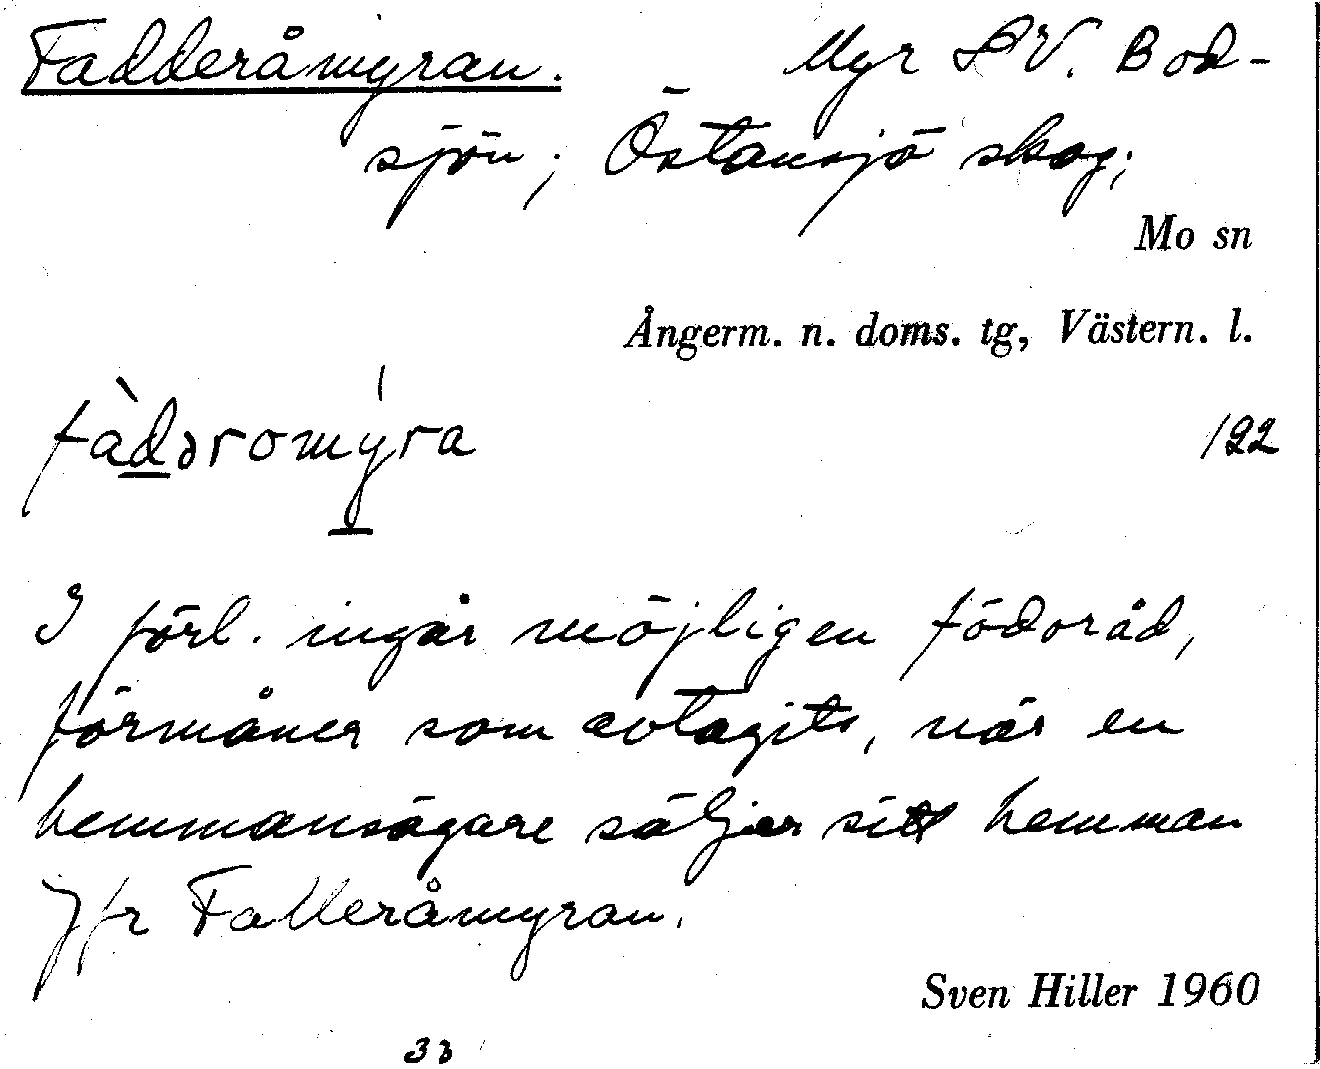 Fadderåmyran. Myr SV. Bod-
sjön; Östansjö skog;
Mo sn
Ångerm. n. doms. tg, Västern. l.
fàdəromýra 122
I förl. ingår möjligen födoråd,
förmåner som avtagits, när en
hemmansägare säljer sitt hemman
Jfr Falleråmyran.
Sven Hiller 1960
33